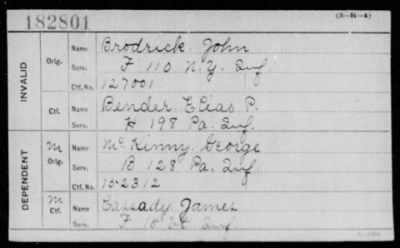 182801 (3-H-4)
INVALID Orig. Name Brodrick, John
Serv. F 110 N.Y. Inf.
Ctf. No. 127001
Ctf. Name Bender, Elias P.
Serv. H 198 Pa. Inf.
DEPENDENT M Orig. Name McKinny, George
Serv. B 128 Pa. Inf.
Ctf. No. 152312
M Ctf. Name Cassady, James
Serv. F 18 Inf.